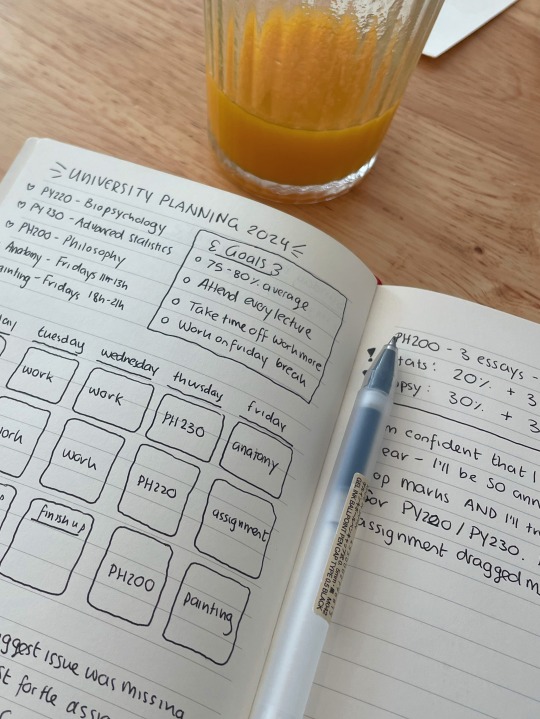 UNIVERSITY PLANNING 2024
PY220 - Biopsychology
PY230 - Advanced Statistics
PH200 - Philosophy
Anatomy - Fridays 11h-13h
Painting - Fridays 18h-21h
Goals
75-80% average
Attend every lecture
Take time off work more
Work on friday break
tuesday wednesday thursday friday
work work PH230 anatomy
work work PY220 assignment
finish up PH200 painting
biggest issue was missing
for the
PH200 - 3 essays -
stats: 20% + 3
30% + 3
confident that I
year - I'll be so
top marks AND I'll
for PY220 / PY230.
Assignment dragged
GEL INK BALL POINT PEN CAP TYPE 0.5 BLACK